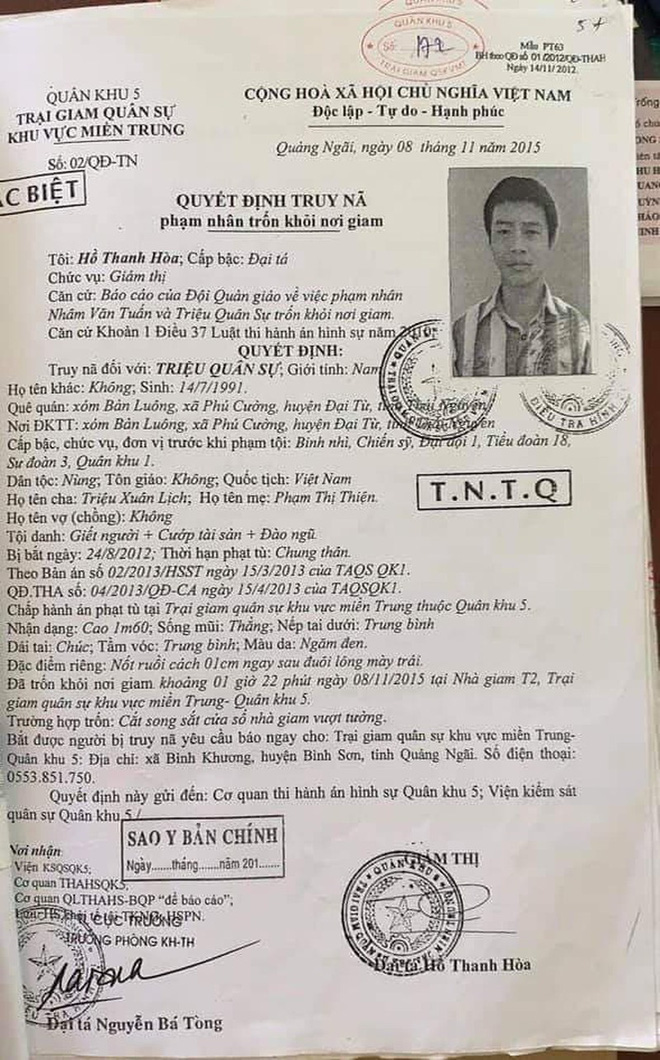 5+
QUÂN KHU 5
Số: 172
TRẠI GIAM QSKVMT
Mẫu PT63
BH theo QĐ số 01/2012/QĐ-THAH
Ngày 14/11/2012.
QUÂN KHU 5
TRẠI GIAM QUÂN SỰ
KHU VỰC MIỀN TRUNG
Số: 02/QĐ-TN
CỘNG HOÀ XÃ HỘI CHỦ NGHĨA VIỆT NAM
Độc lập - Tự do - Hạnh phúc
Quảng Ngãi, ngày 08 tháng 11 năm 2015
ẶC BIỆT
QUYẾT ĐỊNH TRUY NÃ
phạm nhân trốn khỏi nơi giam
Tôi: Hồ Thanh Hòa; Cấp bậc: Đại tá
Chức vụ: Giám thị
Căn cứ: Báo cáo của Đội Quản giáo về việc phạm nhân
Nhâm Văn Tuấn và Triệu Quân Sự trốn khỏi nơi giam.
Căn cứ Khoản 1 Điều 37 Luật thi hành án hình sự năm
QUYẾT ĐỊNH:
Truy nã đối với: TRIỆU QUÂN SỰ; Giới tính: Nam
Họ tên khác: Không; Sinh: 14/7/1991.
Quê quán: xóm Bản Luông, xã Phú Cường, huyện Đại Từ, tỉnh Thái Nguyên
Nơi ĐKTT: xóm Bản Luông, xã Phú Cường, huyện Đại Từ, tỉnh Thái Nguyên
Cấp bậc, chức vụ, đơn vị trước khi phạm tội: Binh nhì, Chiến sỹ, Đại đội 1, Tiểu đoàn 18,
Sư đoàn 3, Quân khu 1.
Dân tộc: Nùng; Tôn giáo: Không; Quốc tịch: Việt Nam
Họ tên cha: Triệu Xuân Lịch; Họ tên mẹ: Phạm Thị Thiện.
Họ tên vợ (chồng): Không
T.N.T.Q
Tội danh: Giết người + Cướp tài sản + Đào ngũ.
Bị bắt ngày: 24/8/2012; Thời hạn phạt tù: Chung thân.
Theo Bản án số 02/2013/HSST ngày 15/3/2013 của TAQS QK1.
QĐ.THA số: 04/2013/QĐ-CA ngày 15/4/2013 của TAQSQK1.
Chấp hành án phạt tù tại Trại giam quân sự khu vực miền Trung thuộc Quân khu 5.
Nhận dạng: Cao 1m60; Sống mũi: Thẳng; Nếp tai dưới: Trung bình
Dái tai: Chúc; Tầm vóc: Trung bình; Màu da: Ngăm đen.
Đặc điểm riêng: Nốt ruồi cách 01cm ngay sau đuôi lông mày trái.
Đã trốn khỏi nơi giam khoảng 01 giờ 22 phút ngày 08/11/2015 tại Nhà giam T2, Trại
giam quân sự khu vực miền Trung- Quân khu 5.
Trường hợp trốn: Cắt song sắt cửa sổ nhà giam vượt tường.
Bắt được người bị truy nã yêu cầu báo ngay cho: Trại giam quân sự khu vực miền Trung-
Quân khu 5: Địa chỉ: xã Bình Khương, huyện Bình Sơn, tỉnh Quảng Ngãi. Số điện thoại:
0553.851.750.
Quyết định này gửi đến: Cơ quan thi hành án hình sự Quân khu 5; Viện kiểm sát
quân sự Quân khu 5./
SAO Y BẢN CHÍNH
Ngày.......tháng.......năm 201.......
Nơi nhận
Viện KSQSQK5;
Cơ quan THAHSQK5;
Cơ quan QLTHAHS-BQP “để báo cáo”;
CỤC TRƯỞNG
TRƯỞNG PHÒNG KH-TH
Đại tá Nguyễn Bá Tòng
GIÁM THỊ
Đại tá Hồ Thanh Hòa